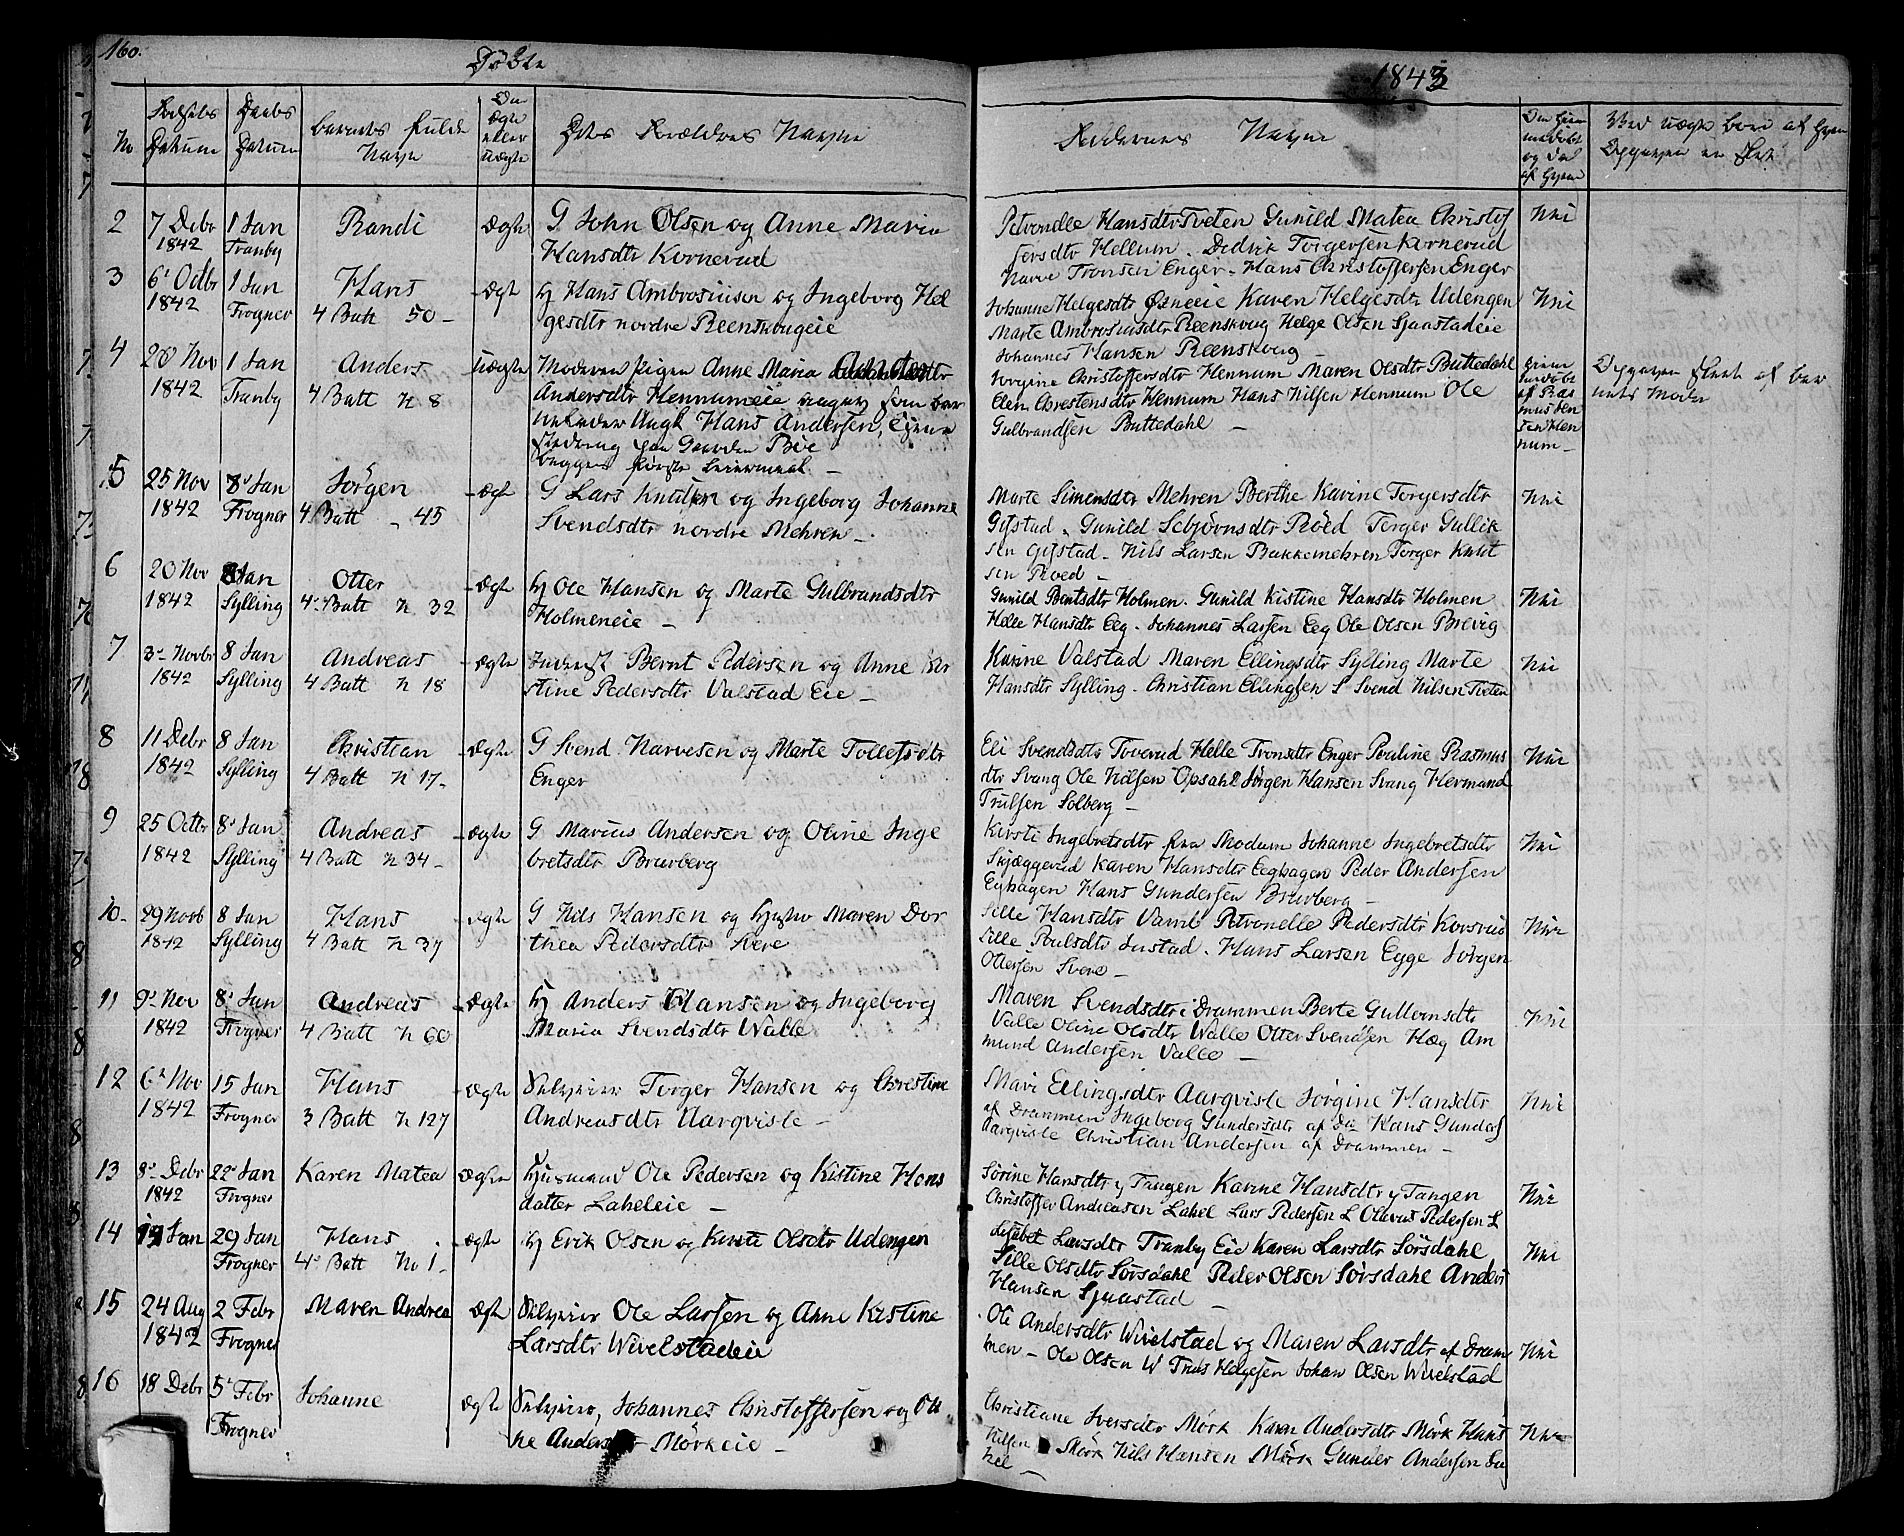 160.
Døbte
1843
No
Fødsels Datum
Daabs Datum
Barnets fulde Navn
Om Ægte eller Uægte
Forældres Navne
Faddernes Navne
2 7 Debr 1842 1 Jan Tranby Randi Ægte
G John Olsen og Anne Maria
Hansdtr Kornerud
Petronelle Hansdtr Tveten Gunild Matea Christof
fersdtr Hellum. Dedrik Torgersen Kornerud
Narve Tronsen Enger - Hans Christoffersen Enger
Nei
3 6' Octbr 1842 1 Jan Frogner Hans 4 Batt 50 - Ægte
Hj Hans Ambrosiusen og Ingeborg Hel
gesdtr nordre Reenskougeie
Johanne Helgesdtr Karen Helgesdtr Udengen
Marte Ambrosiusdtr Reenskoug Helge Olsen Sjaastadeie
Johannes Hansen Reenskoug -
Nei
4 20 Nov 1842 1 Jan Tranby Anders 4 Batt N 8 Uægte
Moderen Pigen Anne Maria
Andersdtr Hennumeie som bar
nefader Ungk Hans Andersen,
fra Gaarden Böe
begges første Leiermaal -
Jorgine Christoffersdtr Hennum Maren Olsdtr Buttedahl
Elen Chrestensdtr Hennum Hans Nilsen Hennum Ole
Gulbrandsen Buttedahl -
Hjem
døbt
af Ras
mus
Hen
num -
Opgaven skeet af bar
nets Moder
5 25 Nov 1842 8' Jan Frogner Jörgen 4 Batt - 45 Ægte
G Lars Knutsen og Ingeborg Johanne
Svendsdtr nordre Mehren -
Marte Simensdtr Mehren Berthe Karine Torgersdtr
Gjfstad. Gunild Sebjörnsdtr Röed Torger Gullik
sen Gjfstad - Nils Larsen Bakkemehren Torger Knut
sen Röed -
Nei
6 20 Nov 1842 8 Jan Sylling Otter 4 Batt N 32 Ægte
Hj Ole Hansen og Marte Gulbrandsdtr
Holmeneie -
Gunild Bentsdtr Holmen. Gunild Kistine Hansdtr Holmen
Helle Hansdtr Eeg. Johannes Larsen Eeg Ole Olsen Brevig
Nei
7 3 - Novbr 1842 8 Jan Sylling Andreas 4 Batt N 18 Ægte
Inderst Bernt Pedersen og Anne Kir
stine Pedersdtr Valstad Eie -
Karine Valstad Maren Ellingsdtr Sylling Marte
Hansdtr Sylling - Christian Ellingsen S Svend Nilsen Tveten
Nei
8 11 Debr 1842 8 Jan Sylling Christian 4 Batt N 17 - Ægte
G Svend Narvesen og Marte Tollefsdtr
Enger
Eli Svendsdtr Toverud Helle Tronsdtr Enger Pauline Rasmus
dtr Svang Ole Nilsen Opsahl Jörgen Hansen Svang Hermand
Trulsen Solberg -
Nei
9 25 Octbr 1842 8' Jan Sylling Andreas 4 Batt N 34 - Ægte
G Marius Andersen og Oline Inge
bretsdtr Brurberg
Kirsti Ingebretsdtr fra Modum Johanne Ingebretsdtr
Skjæggerud Karen Hansdtr Eeghagen Peder Andersen
Eeghagen Hans Gundersen Brurberg -
Nei
10 - 29 Novb 1842 8 Jan Sylling Hans 4 Batt N 37 Ægte
G Nils Hansen og Hustru Maren Dor
thea Pedersdtr Svere
Sille Hansdtr Petronelle Pedersdtr Korsrud
Sille Poulsdtr Justad. Hans Larsen Egge Jörgen
Ottersen Svere -
Nei
11 9' Nov 1842 8' Jan Frogner Andreas 4 Batt N 60 Ægte
Hj Anders Hansen og Ingeborg
Maria Svendsdtr Walle
Maren Svendsdtr i Drammen Berte Gullemsdtr
Valle Oline Olsdtr Walle Otter Svendsen Hæg Am
mund Andersen Valle -
Nei
12 6' Nov 1842 15 Jan Frogner Hans 3 Batt N 127 Ægte
Selveier Torger Hansen og Christine
Andreasdtr Aarqvisle -
Mari Ellingsdtr Aarqvisle Jörgine Hansdtr
af Drammen Ingeborg Gundersdtr af Do Hans Gunders
Aarqvisle Christian Andersen af Drammen -
Nei
13 8' Debr 1842 22' Jan Frogner Karen Matea Ægte
Husmand Ole Pedersen og Kistine Hans
datter Laheleie -
Sörine Hansdtr y Tangen Karine Hansdtr y Tangen
Christoffer Andreasen Lahel Lars Pedersen L Olavus Pedersen L
Nei
14 Jan 29 Jan Frogner Hans 4' Batt No 1 - Ægte
Hj Erik Olsen og Kirsti Olsdtr Udengen
Lisabet Larsdtr Tranby Eie Karen Larsdtr Sörsdahl
Sille Olsdtr Sörsdahl Peder Olsen Sörsdahl Anders
Hansen Sjaastad -
Nei
15 24 Aug 1842 2 Febr Frogner Maren Andrea Ægte
Selveier Ole Larsen og Anne Kistine
Larsdtr Wivelstadeie
Oli Andersdtr Wivelstad og Maren Larsdtr af Dram
men - Ole Olsen W Truls Helgesen Johan Olsen Wivelstad
Nei
16 18 Debr 5' Febr Frogner Johanne Ægte
Selveier, Johannes Christoffersen og Ol
Mörkeie -
Christiane Iversdtr Mörk Karen Andersdtr Mörk Hans
Nilsen Mörk Nils Hansen Mörk Gunder Andersen La
hel -
Nei